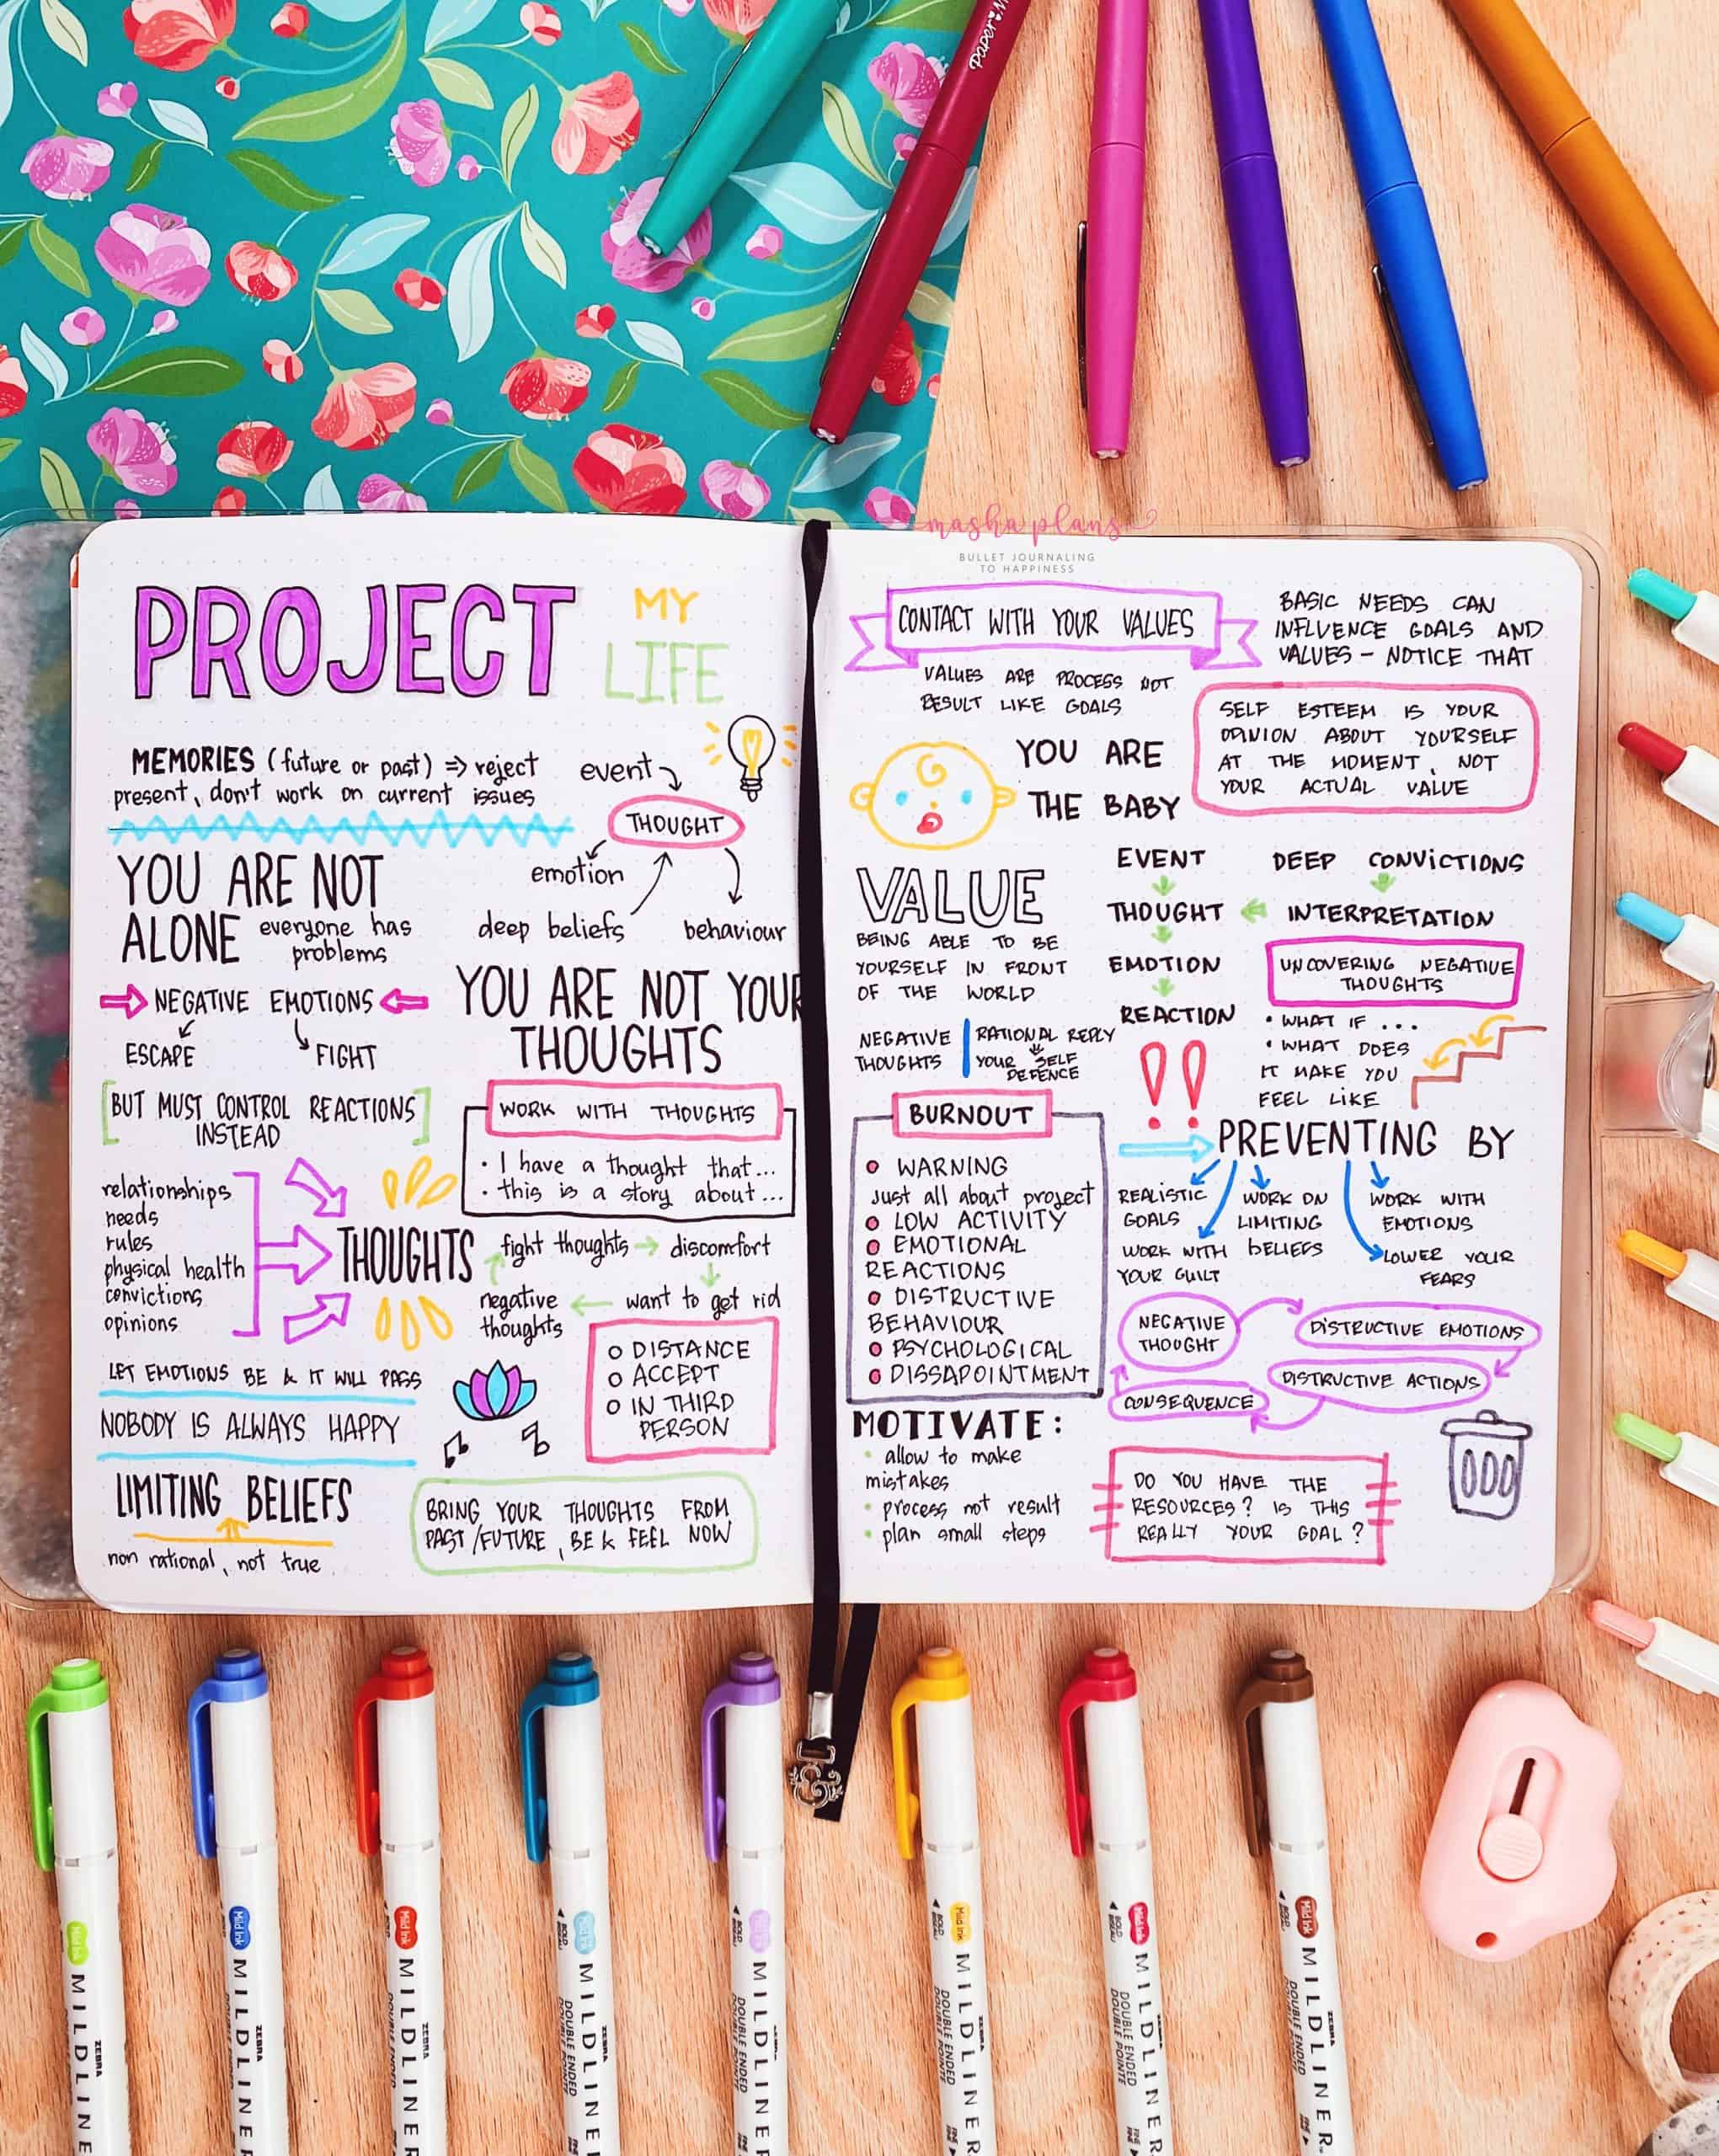 Paper Mate
masha plans
BULLET JOURNALING
TO HAPPINESS
PROJECT MY
LIFE
MEMORIES (future or past) ⇒ reject
present, don't work on current issues
event
THOUGHT
emotion
deep beliefs
behaviour
YOU ARE NOT
ALONE everyone has
problems
NEGATIVE EMOTIONS
ESCAPE
FIGHT
[BUT MUST CONTROL REACTIONS
INSTEAD]
YOU ARE NOT YOUR
THOUGHTS
WORK WITH THOUGHTS
• I have a thought that...
• this is a story about...
relationships
needs
rules
physical health
convictions
opinions
THOUGHTS
fight thoughts → discomfort
negative
thoughts
← want to get rid
LET EMOTIONS BE & IT WILL PASS
NOBODY IS ALWAYS HAPPY
O DISTANCE
O ACCEPT
O IN THIRD
PERSON
LIMITING BELIEFS
non rational, not true
BRING YOUR THOUGHTS FROM
PAST/FUTURE, BE & FEEL NOW
CONTACT WITH YOUR VALUES
VALUES ARE PROCESS NOT
RESULT LIKE GOALS
BASIC NEEDS CAN
INFLVENCE GOALS AND
VALUES - NOTICE THAT
YOU ARE
THE BABY
SELF ESTEEM IS YOUR
OPINION ABOUT YOURSELF
AT THE MOMENT, NOT
YOUR ACTUAL VALUE
VALUE
BEING ABLE TO BE
YOURSELF IN FRONT
OF THE WORLD
EVENT
THOUGHT
EMOTION
REACTION
DEEP CONVICTIONS
INTERPRETATION
UNCOVERING NEGATIVE
THOUGHTS
• WHAT IF ...
• WHAT DOES
IT MAKE YOU
FEEL LIKE
NEGATIVE
THOUGHTS
RATIONAL REPLY
YOUR SELF
DEFENCE
!!
BURNOUT
WARNING
Just all about project
LOW ACTIVITY
EMOTIONAL
REACTIONS
DISTRUCTIVE
BEHAVIOUR
PSYCHOLOGICAL
DISSAPOINTMENT
PREVENTING BY
REALISTIC
GOALS
WORK ON
LIMITING
BELIEFS
WORK WITH
EMOTIONS
WORK WITH
YOUR GUILT
LOWER YOUR
FEARS
NEGATIVE
THOUGHT
DISTRUCTIVE EMOTIONS
DISTRUCTIVE ACTIONS
CONSEQUENCE
MOTIVATE:
• allow to make
mistakes
• process not result
• plan small steps
DO YOU HAVE THE
RESOURCES? IS THIS
REALLY YOUR GOAL?
Mild Ink
ZEBRA
MILDLINE
Mild Ink
ZEBRA
MILDLINER
DOUBLE ENDED
Mild Ink
ZEBRA
MILDLINER
DOUBLE ENDED
Mild Ink
BOLD
ZEBRA
MILDLINER
DOUBLE ENDED
DOUBLE POINTE
Mild Ink
BOLD
ZEBRA
MILDLINER
DOUBLE ENDED
DOUBLE POINTE
Mild Ink
BOLD
ZEBRA
MILDLINER
DOUBLE ENDED
DOUBLE POINTE
Mild Ink
BOLD
ZEBRA
MILDLINER
DOUBLE ENDED
DOUBLE POINTE
Mild Ink
BOLD
ZEBRA
MILDLINER
DOUBLE ENDED
DOUBLE POINTE